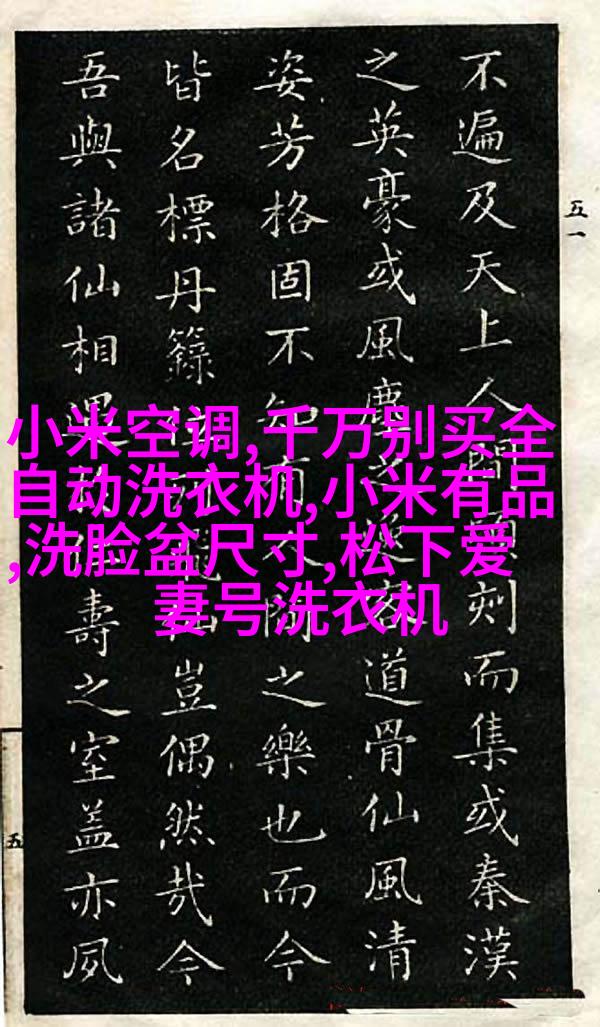 不遍及天上人間頃刻而集或秦漢
之英豪或風塵之逸客道骨仙風清
姿芳格固不知有人間之樂也而今
皆名標丹籙位列飛仙豈偶然哉今
吾與諸仙相遇於仁壽之室蓋亦夙
五一
五
小米空调,千万别买全
自动洗衣机,小米有品
,洗脸盆尺寸,松下爱
妻号洗衣机